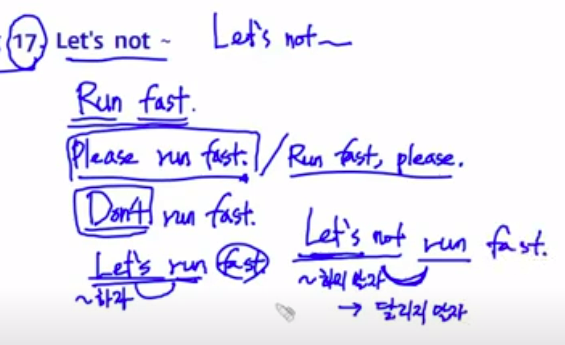 17. Let's not ~ Let's not ~
Run fast.
Please run fast. / Run fast, please.
Don't run fast.
Let's run fast.
~하자
Let's not run fast.
~하지 말자
→ 달리지 말자